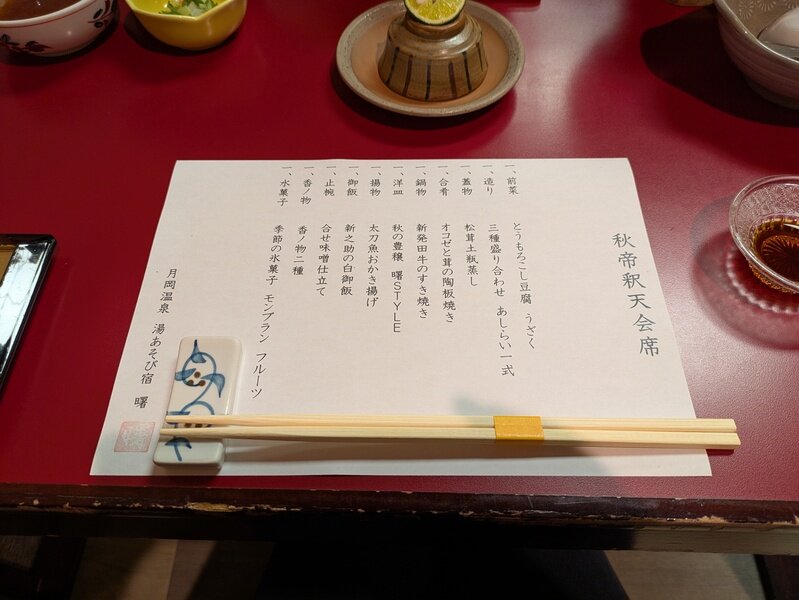 秋帝釈天会席
一、前菜 とうもろこし豆腐 うざく
一、造り 三種盛り合わせ あしらい一式
一、蓋物 松茸土瓶蒸し
一、合肴 オコゼと茸の陶板焼き
一、鍋物 新発田牛のすき焼き
一、洋皿 秋の豊穣 曙STYLE
一、揚物 太刀魚おかき揚げ
一、御飯 新之助の白御飯
一、止椀 合せ味噌仕立て
一、香ノ物 香ノ物二種
一、水菓子 季節の氷菓子 モンブラン フルーツ
月岡温泉 湯あそび宿 曙